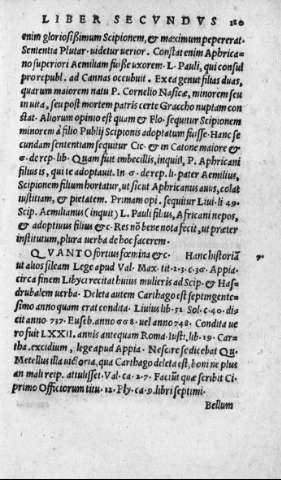 LIBER SECVNDVS 110
enim gloriosissimum Scipionem, & maximum pepererat.
Sententia Plutar. uidetur uerior. Constat enim Aphrica-
no superiori Aemiliam fuisse uxorem. L. Pauli, qui consul
pro republ. ad Cannas occubuit. Ex ea genuit filias duas,
quarum maiorem natu P. Cornelio Nasicæ, minorem seu
in uita, seu post mortem patris certe Graccho nuptam con
stat. Aliorum opinio est quam & Flo. sequitur Scipionem
minorem à filio Publij Scipionis adoptatum fuisse. Hanc se
cundam sententiam sequitur Cic. & in Catone maiore &
6. de rep. lib. Quàm fuit imbecillis, inquit, P. Aphricani
filius is, qui te adoptauit. In 6. de rep. li. pater Aemilius,
Scipionem filium hortatur, ut sicut Aphricanus auus, colat
iustitiam, & pietatem. Primam opi. sequitur Liui. li. 49.
Scip. Aemilianus (inquit) L. Pauli filius, Africani nepos,
& adoptiuus filius &c. Res nō bene nota fecit, ut præter
institutum, plura uerba de hoc facerem.
QVANTO fortius fœmina &c. Hanc historiā
ut alios sileam Lege apud Val. Max. tit. 2. 3. c. 36. Appia.
circa finem Libyci recitat huius mulieris ad Scip. & Has
drubalem uerba. Deleta autem Carthago est septingente
simo anno quam erat condita. Liuius lib. 51. Sol. c. 40. di
cit anno 737. Euseb. anno 668. uel anno 748. Condita ue
ro fuit LXXII. annis antequam Roma. Iusti. lib. 19. Car-
tha. excidium, lege apud Appia. Nescire se dicebat Qu.
Metellus illa uictoria, qua Carthago deleta est, boni ne plus
an mali reip. attulisset. Val. ca. 2. 7. Faciūt quæ scribit Ci.
primo Officiorum titu. 12. Ply. ca. 9. libri septimi.
Bellum